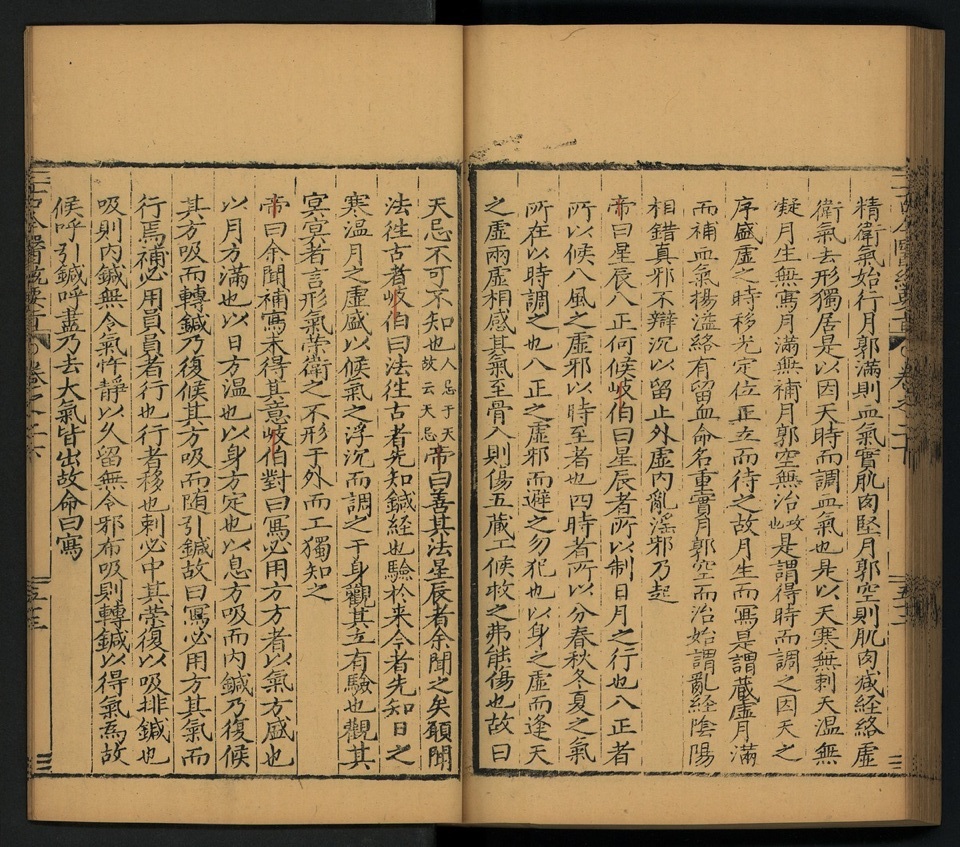 精衛氣始行月郭滿則血氣實肌肉堅月郭空則肌肉減經絡虛
衛氣去形獨居是以因天時而調血氣也是以天寒無刺天溫無
凝月生無寫月滿無補月郭空無治攻也是謂得時而調之因天之
序盛虛之時移光定位正立而待之故月生而寫是謂蔵虛月滿
而補血氣揚溢絡有留血命名重實月郭空而治始謂亂經陰陽
相錯真邪不辯沉以留止外虛內亂滛邪乃起
帝曰星辰八正何候岐伯曰星辰者所以制日月之行也八正者
所以候八風之虛邪以時至者也四時者所以分春秋冬夏之氣
所在以時調之也八正之虛邪而避之勿犯也以身之虛而逢天
之虛兩虛相感其氣至骨入則傷五蔵工候救之弗能傷也故曰
天忌不可不知也人忌于天故云天忌帝曰善其法星辰者余聞之矣願聞
法徃古者岐伯曰法徃古者先知鍼経也驗於来今者先知日之
寒温月之虛盛以候氣之浮沉而調之于身觀其立有驗也觀其
冥冥者言形氣榮衛之不形于外而工獨知之
帝曰余聞補寫未得其意岐伯對曰寫必用方方者以氣方盛也
以月方滿也以日方温也以身方定也以息方吸而内鍼乃復候
其方吸而轉鍼乃復候其方吸而随引鍼故曰寫必用方其氣而
行焉補必用員員者行也行者移也刺必中其榮復以吸排鍼也
吸則内鍼無令氣忤靜以久留無令邪布吸則轉鍼以得氣焉故
候呼引鍼呼盡乃去大氣皆出故命曰寫